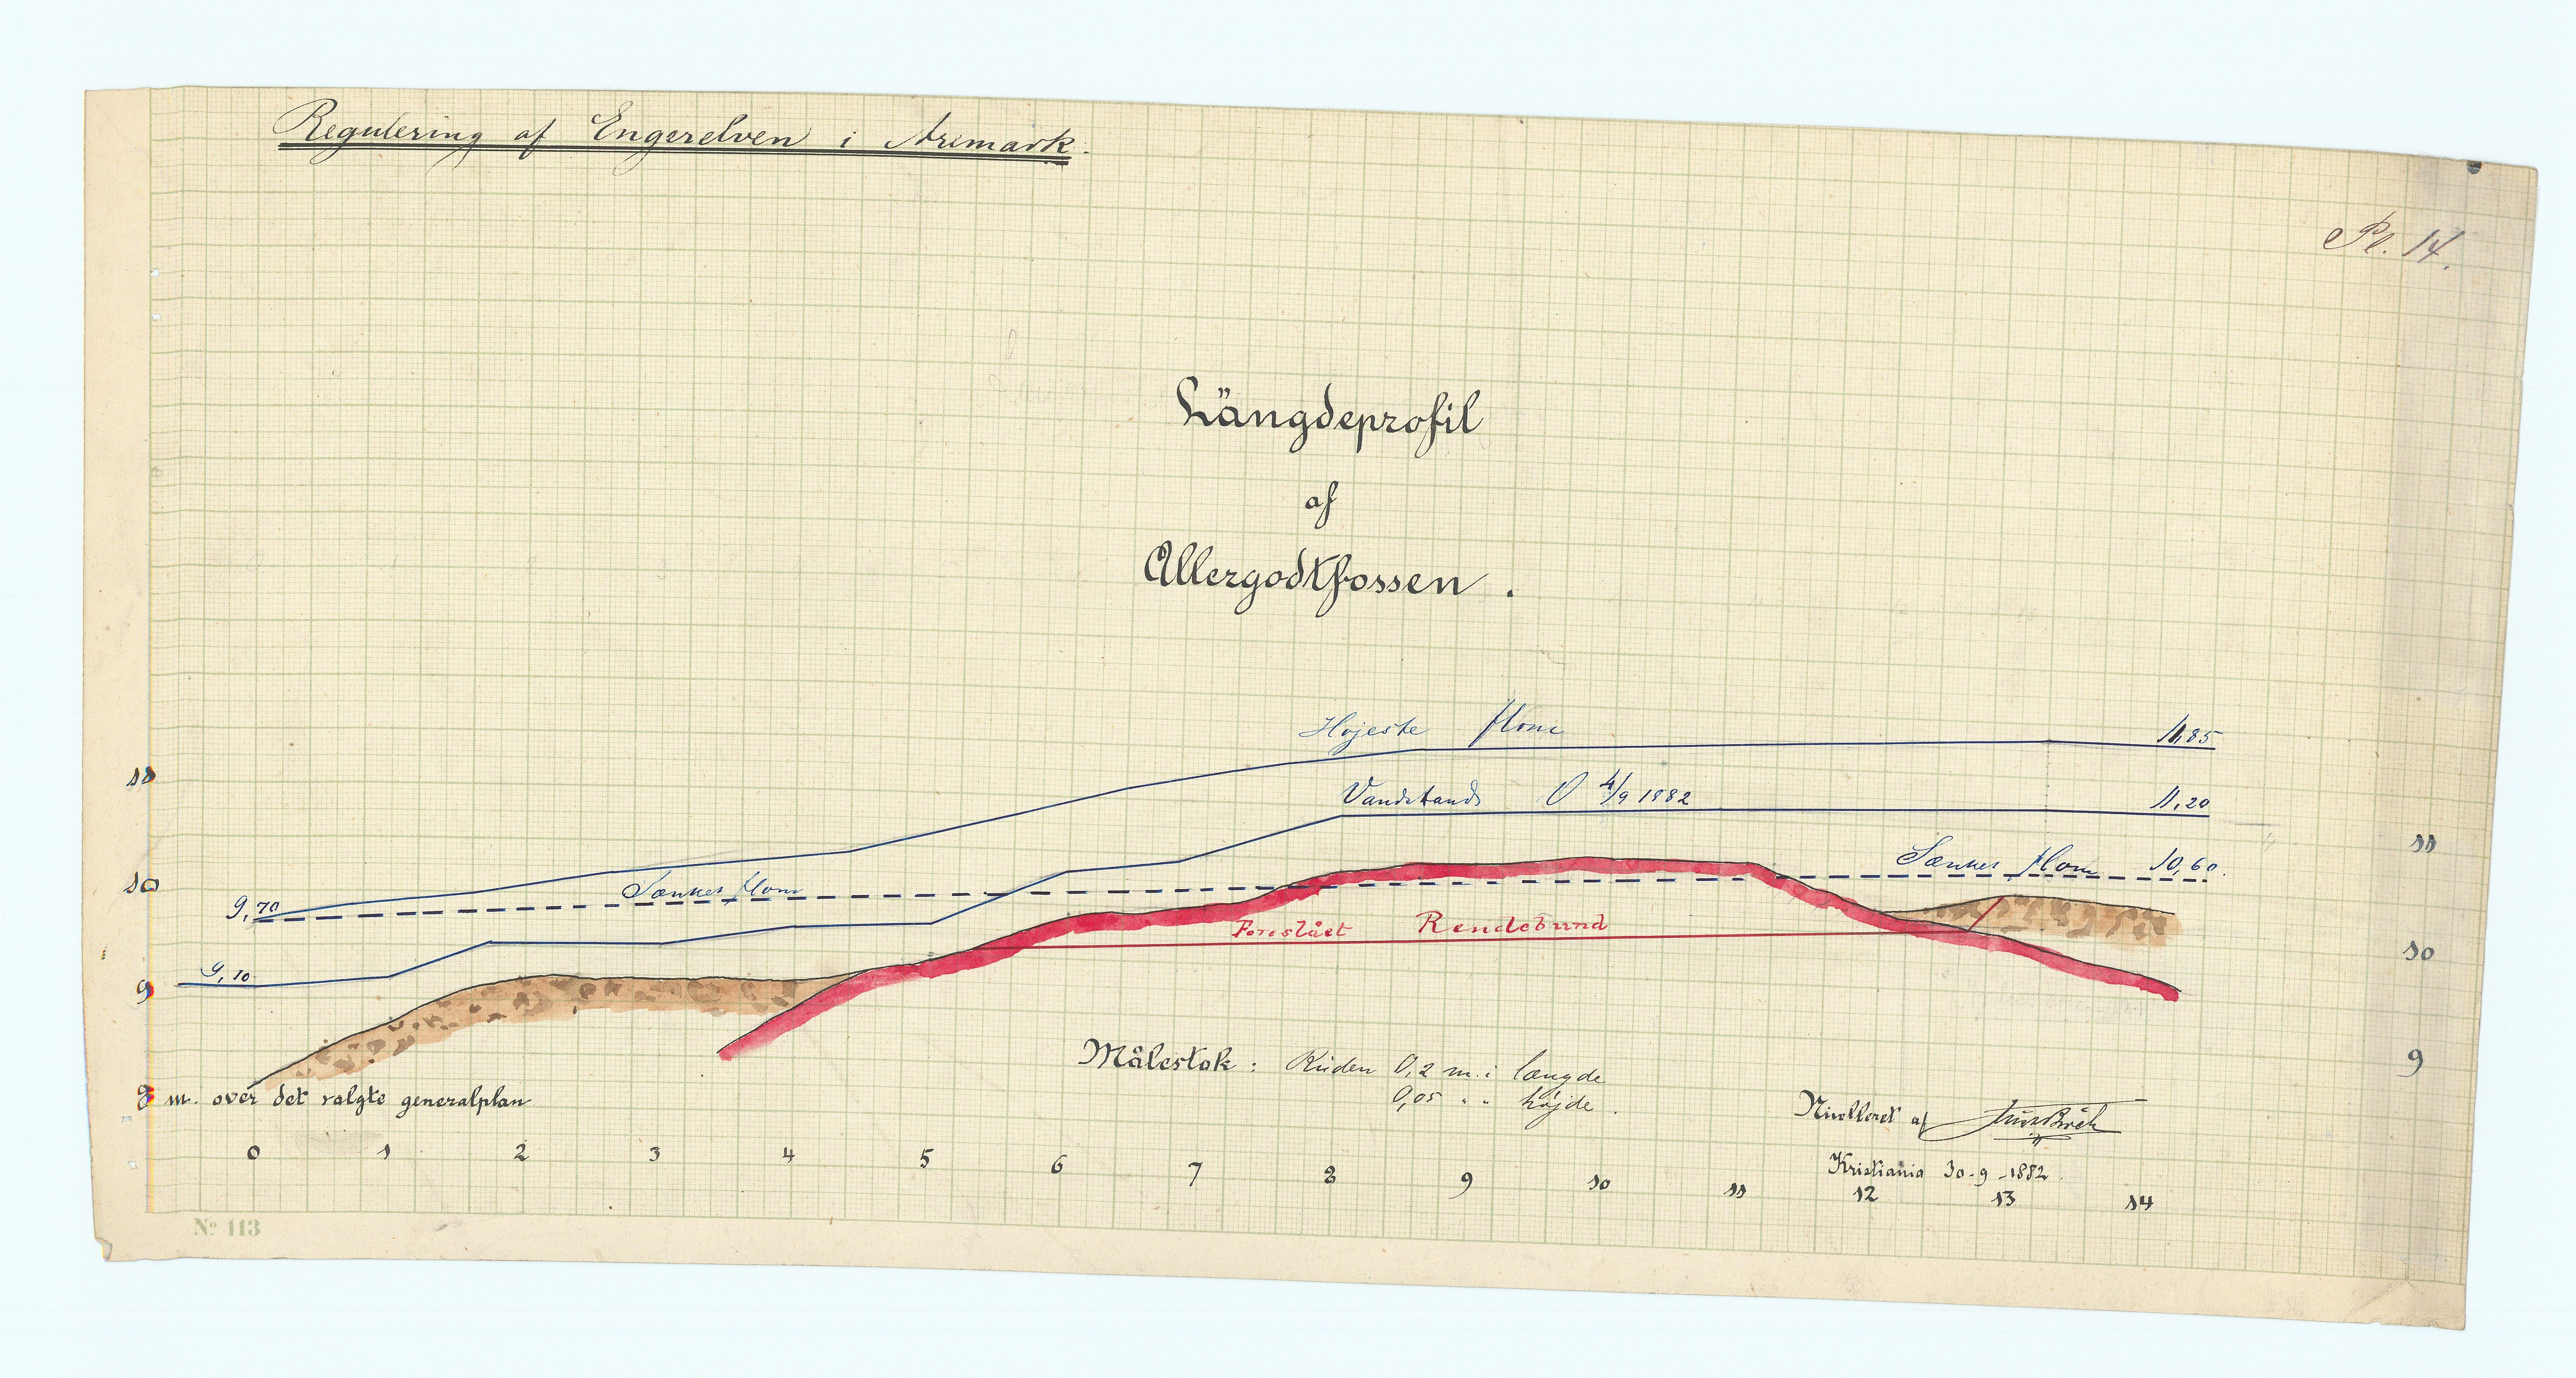 Regulering af Engerelven i Aremark.
Pl. 14.
Längdeprofil
af
Allergodtfossen.
Højeste flom 11,85
11
Vandstand d 4/9 1882 11,20
11
Sænket flom 10,60.
10
Sænket flom
9,70
Foreslået Rendebund
10
9,10
9
Målestok: Ruden 0,2 m. i længde
9
0,05 " " højde.
8 m. over det valgte generalplan
Nivelleret af
Kristiania 30-9-1882.
0 1 2 3 4 5 6 7 8 9 10 11 12 13 14
No 113